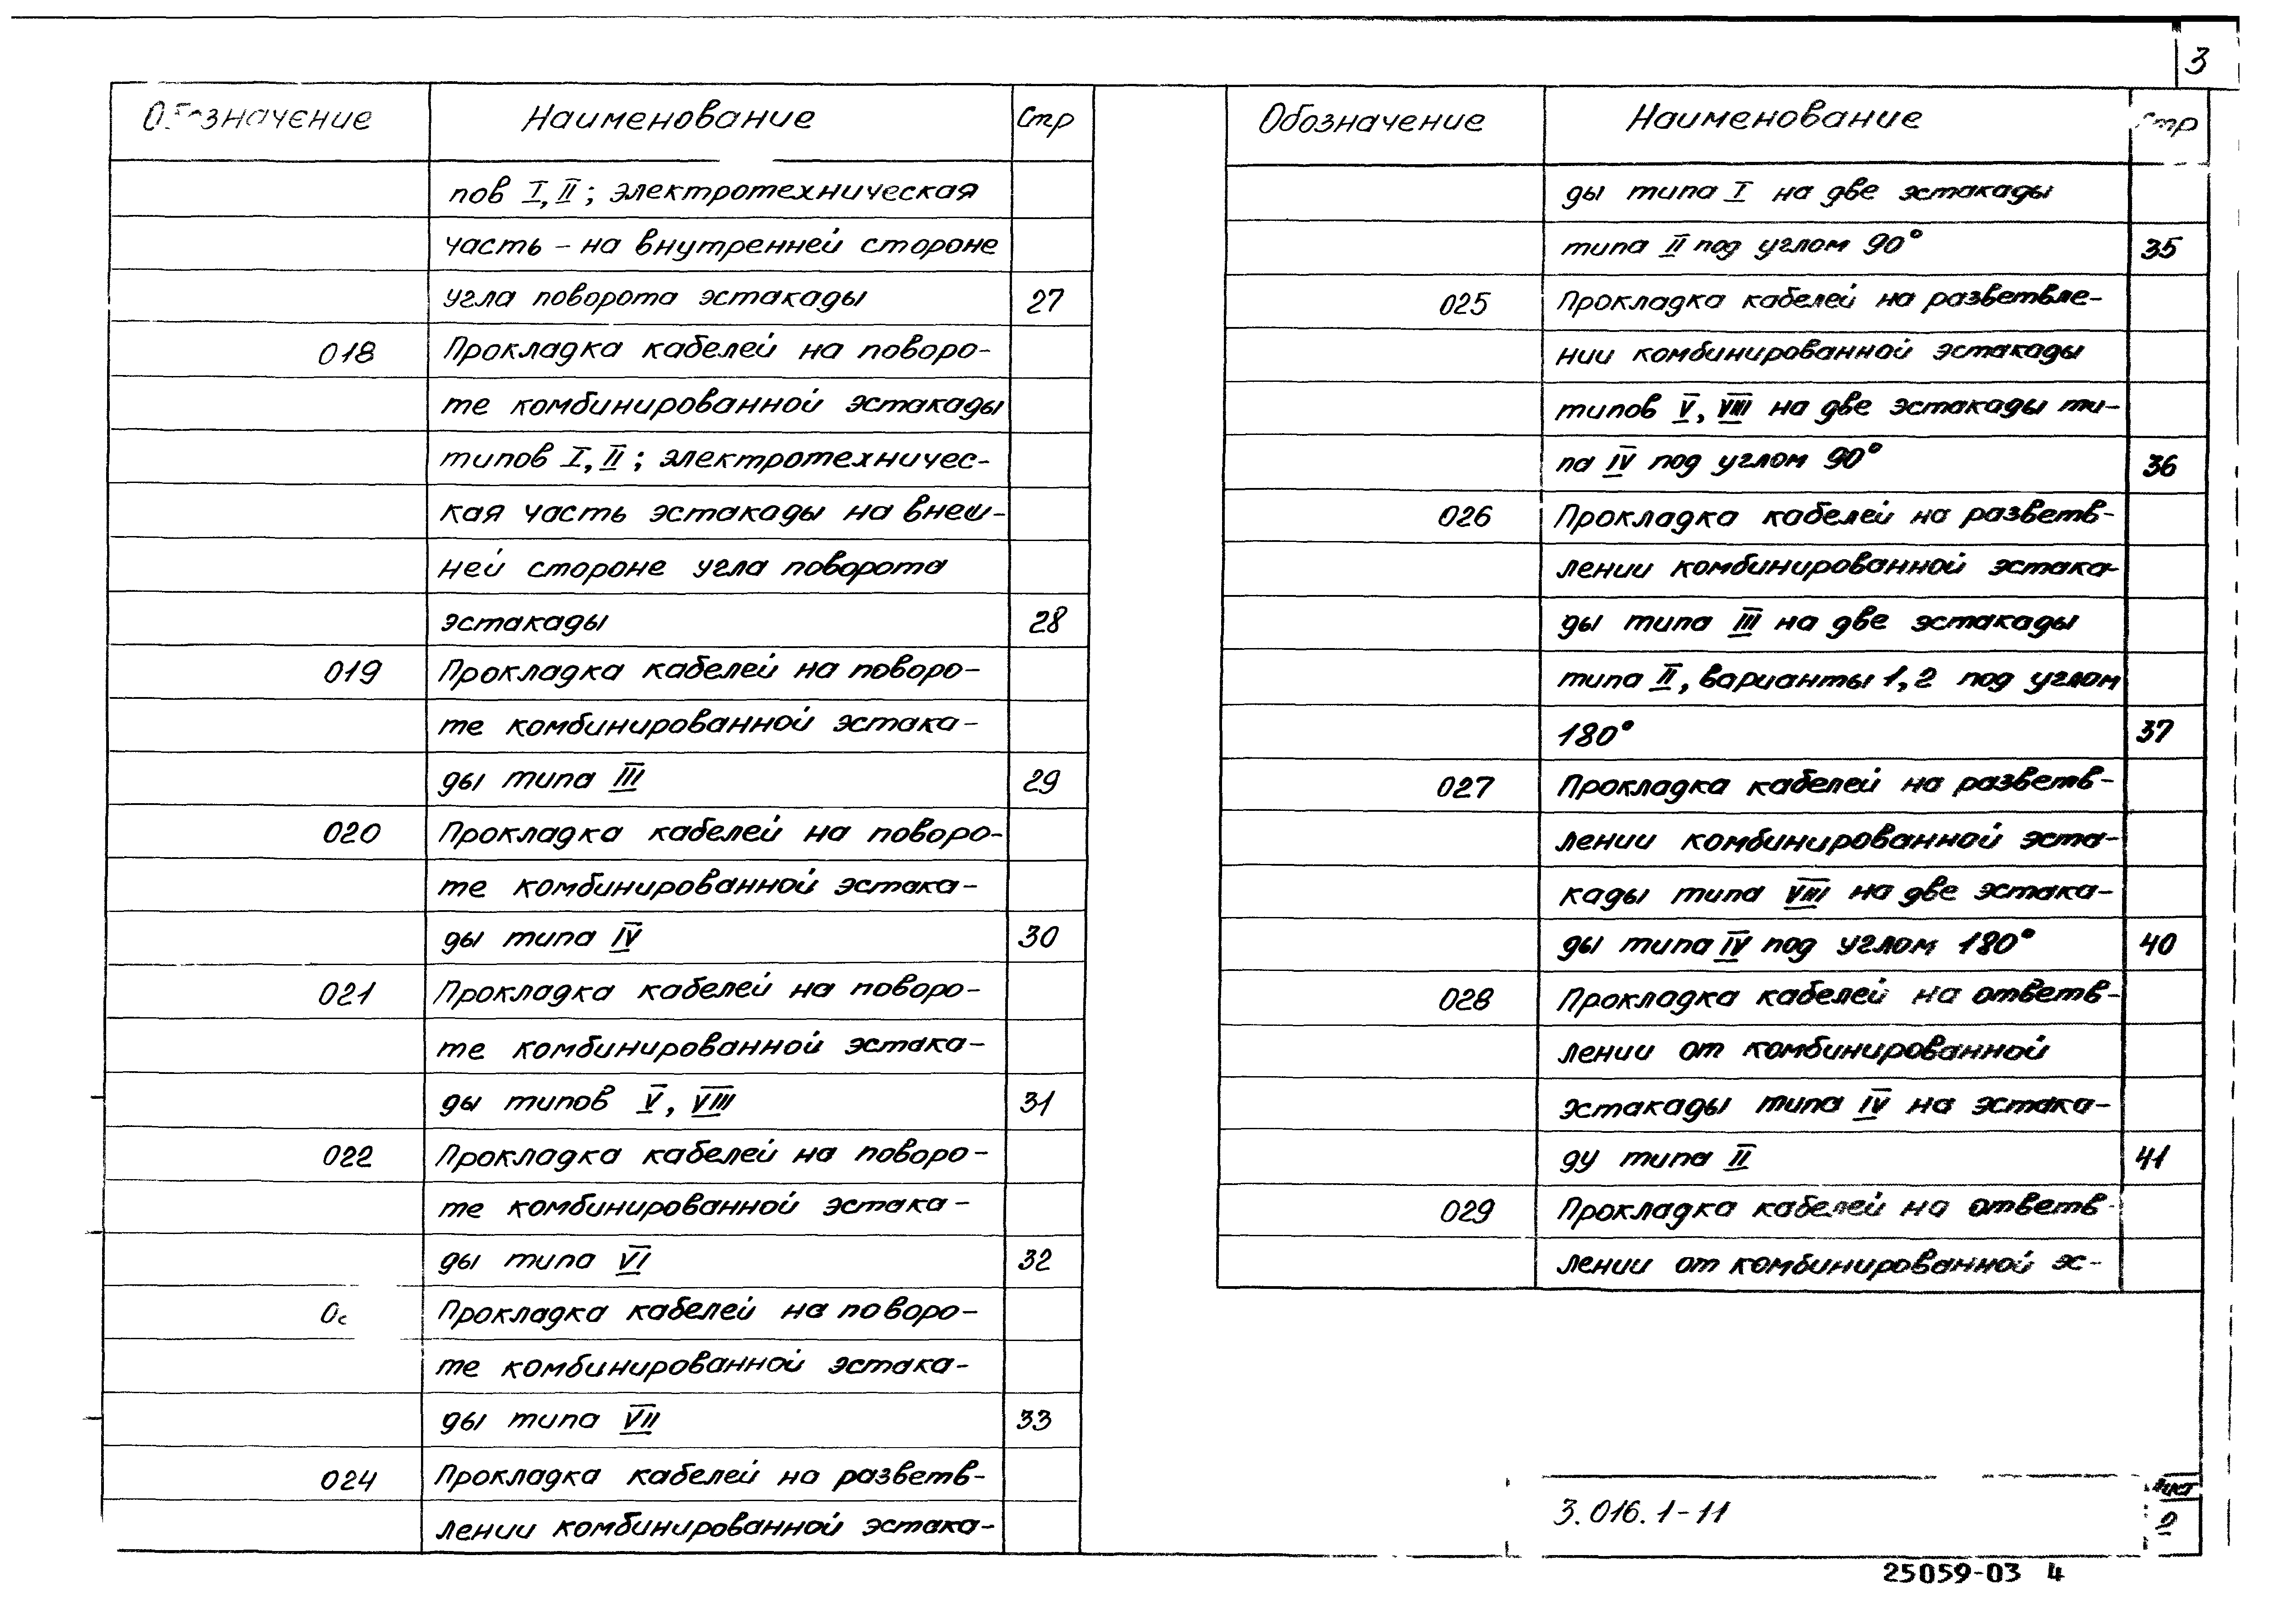 3
Обозначение Наименование Стр
пов I, II; электротехническая
часть – на внутренней стороне
угла поворота эстакады 27
018 Прокладка кабелей на поворо-
те комбинированной эстакады
типов I, II; электротехничес-
кая часть эстакады на внеш-
ней стороне угла поворота
эстакады 28
019 Прокладка кабелей на поворо-
те комбинированной эстака-
ды типа III 29
020 Прокладка кабелей на поворо-
те комбинированной эстака-
ды типа IV 30
021 Прокладка кабелей на поворо-
те комбинированной эстака-
ды типов V, VIII 31
022 Прокладка кабелей на поворо-
те комбинированной эстака-
ды типа VI 32
Прокладка кабелей на поворо-
те комбинированной эстака-
ды типа VII 33
024 Прокладка кабелей на разветв-
лении комбинированной эстака-
Обозначение Наименование Стр
ды типа I на две эстакады
типа II под углом 90° 35
025 Прокладка кабелей на разветвле-
нии комбинированной эстакады
типов V, VIII на две эстакады ти-
па IV под углом 90° 36
026 Прокладка кабелей на разветв-
лении комбинированной эстака-
ды типа III на две эстакады
типа II, варианты 1, 2 под углом
180° 37
027 Прокладка кабелей на разветв-
лении комбинированной эста-
кады типа VIII на две эстака-
ды типа IV под углом 180° 40
028 Прокладка кабелей на ответв-
лении от комбинированной
эстакады типа IV на эстака-
ду типа II 41
029 Прокладка кабелей на ответв-
лении от комбинированной эс-
3.016.1-11
Лист
2
25059-03 4